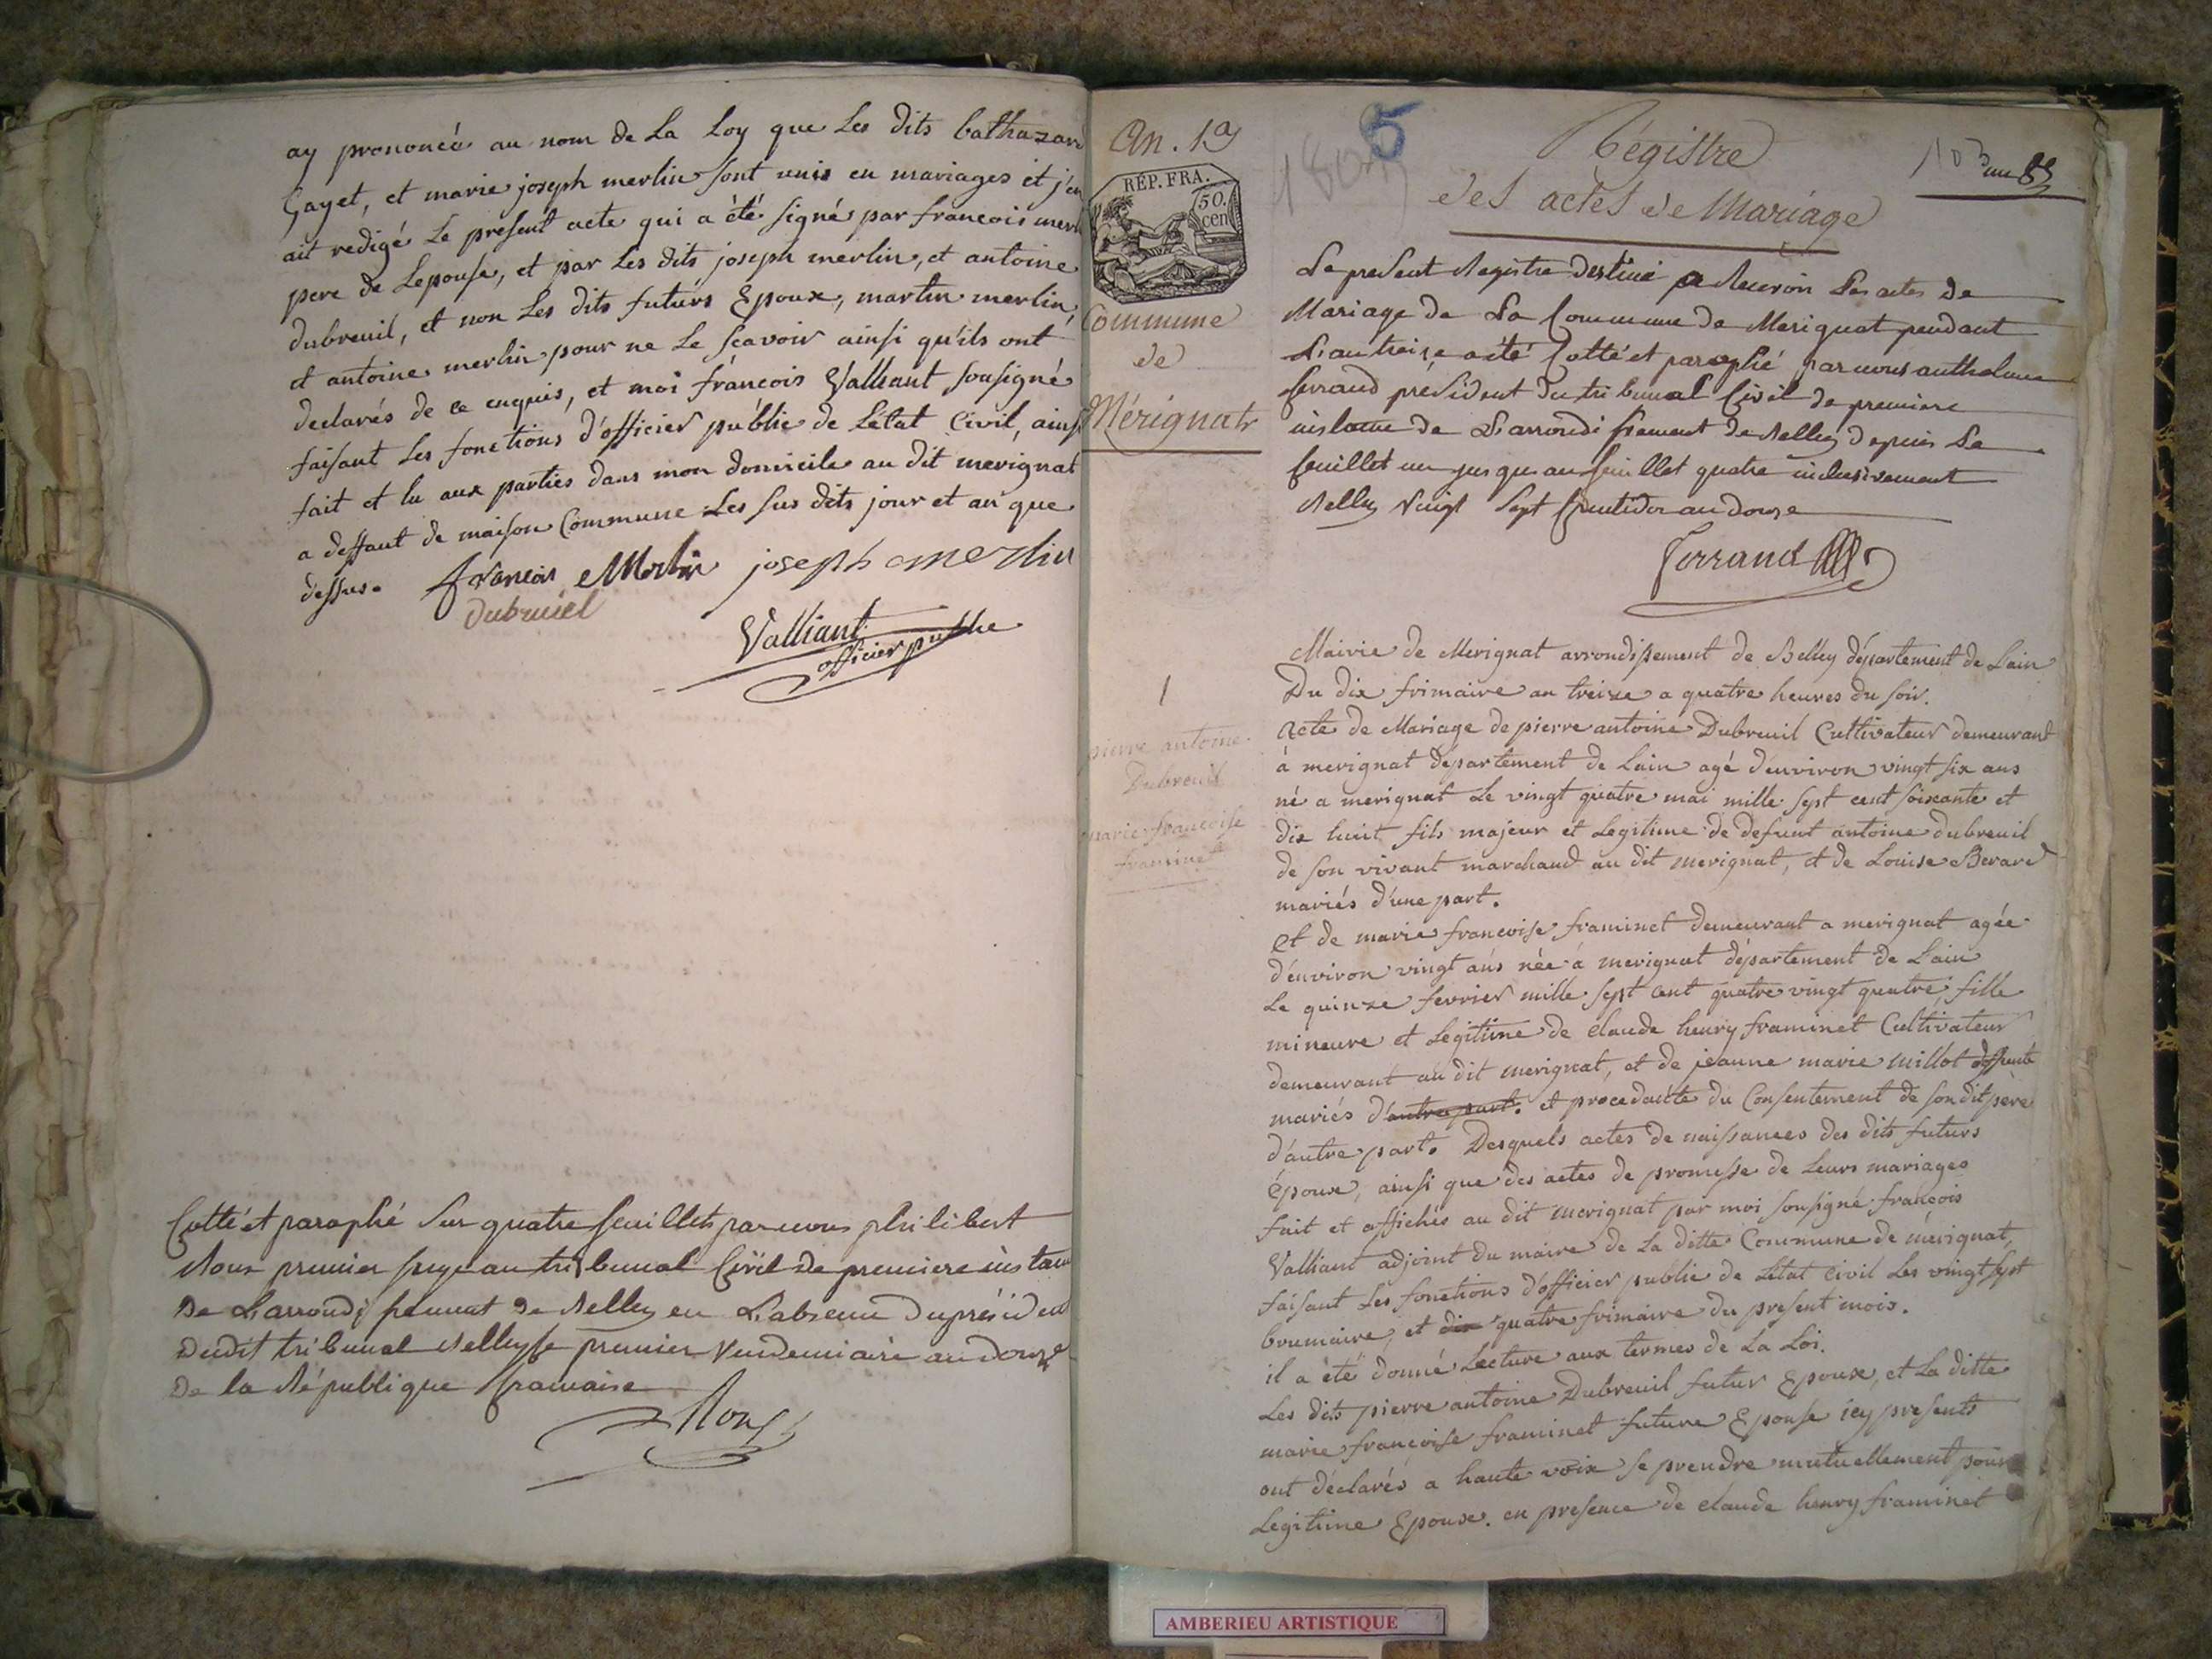 ay prononcé au nom de La Loy que Les dits bathazard
Gayet, et marie joseph merlin sont unis en mariages et j'en
ait redigé Le present acte qui a été signé par francois merl
pere de Lepouse, et par Les dits joseph merlin, et antoine
dubreuil, et non Les dits futurs Epoux, martin merlin,
et antoine merlin pour ne Le scavoir ainsi qu'ils ont
declarés de ce enquis, et moi francois Valliant sousigné
faisant Les fonctions d'officier public de Létat Civil, ainsi
fait et lu aux parties dans mon domicile au dit merignat
a deffaut de maison Commune Les sus dits jour et an que
dessus.
francois Merlin joseph merlin
dubruiel
Valliant
officier public
Cotté et paraphé Sur quatre feuillets par nous philibert
premier juge au tribunal Civil de premiere instance
De L'arrondissement de Belley en L'absence du président
Dudit tribunal Belley le premier Vendemiaire an douze
De la République francaise
An. 13
RÉP. FRA.
50.
cen
Commune
de
Mérignat
1805
5
Régistre
des actes de Mariage
Le present Registre Destiné a Recevoir Les actes de
Mariage de La Commune de Merignat pendant
L'an treize a été Cotté et paraphé par nous anthelme
ferrand président du tribunal Civil de premiere
instance de L'arrondissement de Belley depuis Le
feuillet un jusques au feuillet quatre inclusivement
Belley Vingt Sept fructidor an douze
Ferrand
1
pierre antoine
Dubreuil
marie francoise
framinet
Mairie de Merignat arrondissement de Belley département de Lain
Du dix frimaire an treize a quatre heures du soir.
Acte de Mariage de pierre antoine Dubreuil Cultivateur demeurant
à merignat département de Lain agé d'environ vingt six ans
né a merignat Le vingt quatre mai mille sept cent soixante et
dix huit fils majeur et Legitime de defunt antoine dubreuil
de son vivant marchand au dit merignat, et de Louise Berard
mariés d'une part.
et de marie francoise framinet demeurant a merignat agée
d'environ vingt ans née à merignat département de Lain
Le quinze fevrier mille sept cent quatre vingt quatre, fille
mineure et Legitime de claude henry framinet Cultivateur
demeurant au dit merignat, et de jeanne marie millot deffunte
mariés d'autre part. et procedante du Consentement de son dit père
d'autre part. Desquels actes de naissances des dits futurs
époux, ainsi que des actes de promesse de Leurs mariages
fait et affichés au dit merignat par moi sousigné françois
Valliant adjoint du maire de La ditte Commune de mérignat,
faisant Les fonctions d'officier public de Létat civil Les vingt sept
brumaire, et dix quatre frimaire du present mois.
il a été donné Lecture aux termes de La Loi.
Les dits pierre antoine Dubreuil futur Epoux, et La ditte
marie françoise framinet future Epouse icy presents
ont déclarés a haute voix se prendre mutuellement pour
Legitime Epoux. en presence de claude henry framinet
AMBERIEU ARTISTIQUE